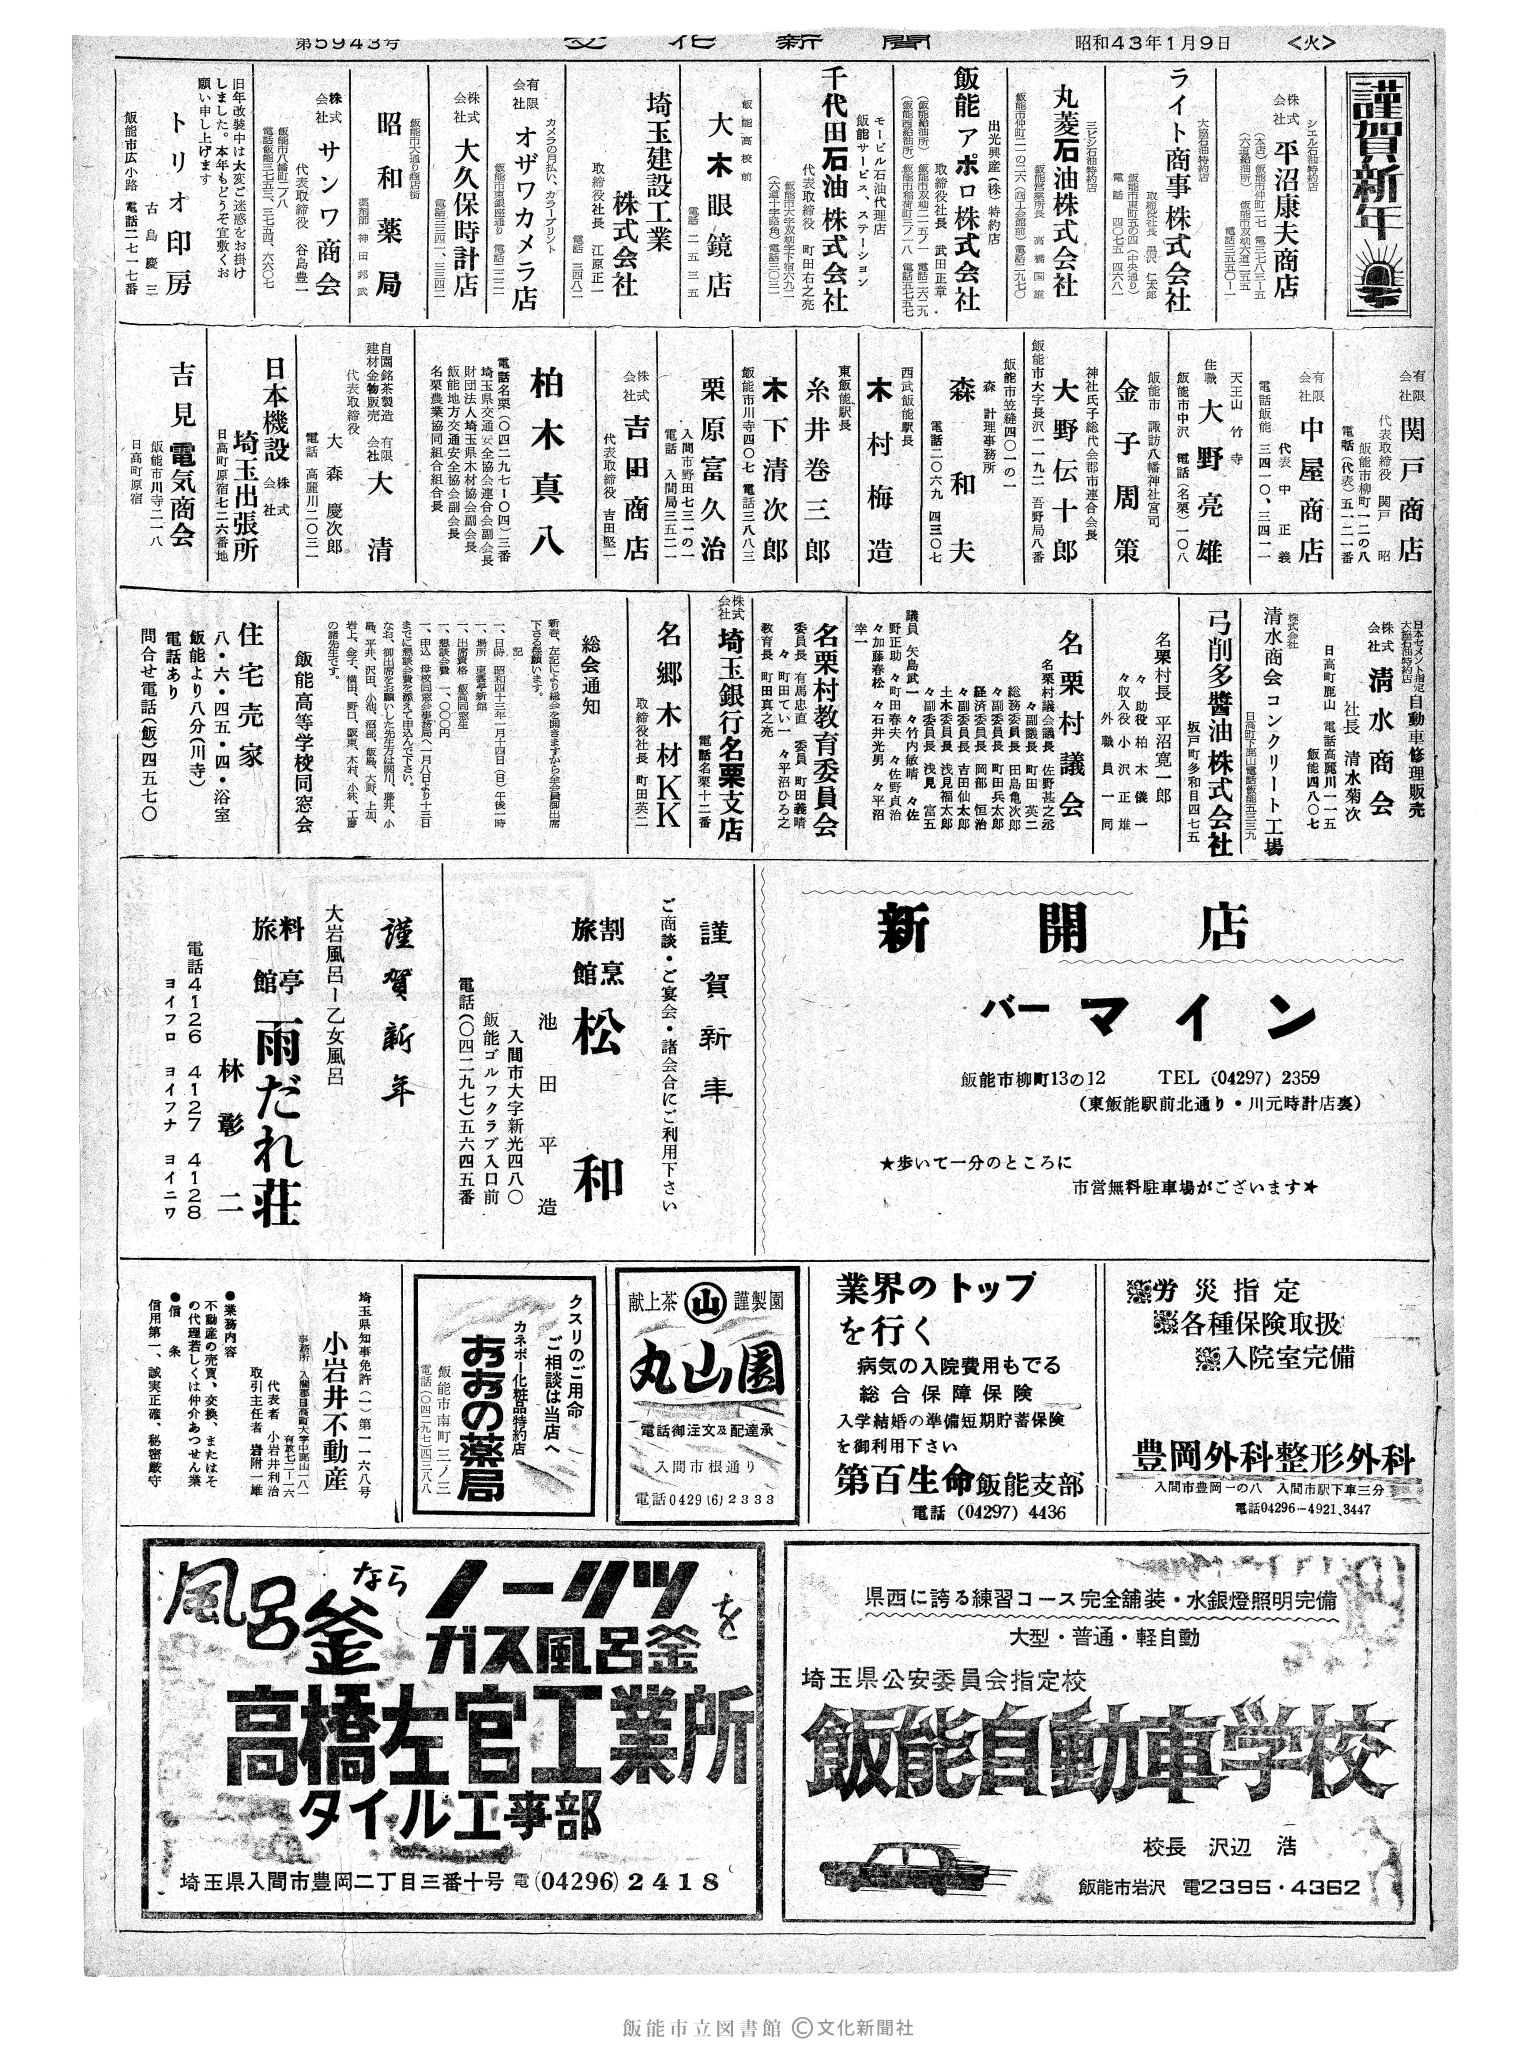 第5943号
文化新聞
昭和43年1月9日
<火>
謹賀新年
シエル石油特約店
株式会社 平沼康夫商店
大協石油特約店
ライト商事株式会社
三ビシ石油特約店
丸菱石油株式会社
飯能営業所長 高橋国雄
出光興産(株)特約店
飯能アポロ株式会社
取締役社長 武田正章
モービル石油代理店
飯能サービス、ステーション
千代田石油株式会社
代表取締役 町田右之亮
埼玉建設工業株式会社
取締役社長 江原正一
飯能高校前
大木眼鏡店
電話 二五三五
カメラの月払い、カラープリント
有限会社 オザワカメラ店
株式会社 大久保時計店
飯能市大通り商店街
昭和薬局
薬剤師 神田邦武
株式会社 サンワ商会
代表取締役 谷島豊一
旧年改装中は大変ご迷惑をお掛け
しました。本年もどうぞ宜敷くお
願い申し上げます
トリオ印房
古島慶三
飯能市広小路 電話二七一七番
有限会社 関戸商店
代表取締役 関戸昭
飯能市柳町一二の八
電話(代表)五一二一番
有限会社 中屋商店
代表 中正義
電話飯能 三四一〇、三四一一
天王山 竹寺
住職 大野亮雄
飯能市中沢 電話(名栗)一〇八
飯能市 諏訪八幡神社宮司
金子周策
神社氏子総代会郡市連合会長
大野伝十郎
飯能市大字長沢一一九二 吾野局八番
飯能市笠縫四〇一の一
森 計理事務所
森和夫
電話二〇六九 四三〇七
西武飯能駅長
木村梅造
東飯能駅長
糸井巻三郎
木下清次郎
飯能市川寺四〇七 電話三八八三
栗原富久治
入間市野田七三一の一
電話 入間局三五二一
株式会社 吉田商店
代表取締役 吉田堅一
柏木真八
電話名栗(〇四二九七ー〇四)三番
埼玉県交通安全協会連合会副会長
財団法人埼玉県木材協会副会長
飯能地方交通安全協会副会長
名栗農業協同組合組合長
自園銘茶製造
建材金物販売
有限会社 大清
代表取締役 大森慶次郎
電話 高麗川二〇三一
日本機設株式会社
埼玉出張所
日高町原宿七二六番地
吉見電気商会
飯能市川寺二一八
日高町原宿
日本セメント指定
大協石油特約店
自動車修理販売
株式会社 清水商会
社長 清水菊次
日高町鹿山 電話高麗川一一五
飯能四八〇七
株式会社
清水商会コンクリート工場
日高町下鹿山電話飯能五三三九
弓削多醬油株式会社
坂戸町多和目四七五
名栗村長 平沼寛一郎
〃助役 柏木儀一
〃収入役 小沢正雄
外職員一同
名栗村議会
名栗村議会議長 佐野甚之丞
〃副議長 町田英二
総務委員長 田島亀次郎
〃副委員長 町田兵太郎
経済委員長 岡部恒治
〃副委員長 吉田仙太郎
土木委員長 浅見福太郎
〃副委員長 浅見富五
議員 矢島武一 〃竹内敏晴 〃佐
野正助 〃町田春夫 〃佐野貞治
〃加藤春松 〃石井光男 〃平沼
幸一
名栗村教育委員会
委員長 有馬忠直 委員 町田義晴
〃町田てい 〃平沼ひろ之
教育長 町田真之亮
株式会社 埼玉銀行名栗支店
電話名栗十二番
名郷木材KK
取締役社長 町田英二
総会通知
新春、左記により総会を開きますから全会員御出席
下さる様願います。
記
一、日時 昭和四十三年一月十四日(日)午後一時
一、場所 東雲亭新館
一、出席資格 飯高同窓生
一、懇談会費 一、〇〇〇円
一、申込 母校同窓会事務局へ一月八日より十三日
までに懇談会費を添えて申込んで下さい。
なお、御出席をお願いした先生方は関川、藤井、小
島、平井、沢田、小池、沼部、飯島、大野、上知、
岩上、金子、横田、野口、阪東、木村、小林、工藤
の諸先生です。
飯能高等学校同窓会
住宅売家
八・六・四五・四・浴室
飯能より八分(川寺)
電話あり
問合せ電話(飯)四五七〇
新開店
バー マイン
飯能市柳町13の12 TEL (04297) 2359
(東飯能駅前北通り・川元時計店裏)
★歩いて一分のところに
市営無料駐車場がございます★
謹賀新年
ご商談・ご宴会・諸会合にご利用下さい
割烹旅館 松和
池田平造
入間市大字新光四八〇
飯能ゴルフクラブ入口前
電話(〇四二九七)五六四五番
謹賀新年
大岩風呂ー乙女風呂
料亭旅館 雨だれ荘
林彰二
電話4126 4127 4128
ヨイフロ ヨイフナ ヨイニワ
労災指定
各種保険取扱
入院室完備
豊岡外科整形外科
入間市豊岡一の八 入間市駅下車三分
電話04296-4921、3447
業界のトップ
を行く
病気の入院費用もでる
総合保障保険
入学結婚の準備短期貯蓄保険
を御利用下さい
第百生命飯能支部
電話 (04297) 4436
献上茶 山 謹製園
丸山園
電話御注文及配達承
入間市根通り
電話0429(6)2333
クスリのご用命
ご相談は当店へ
カネボー化粧品特約店
おおの薬局
飯能市南町三ノ三
電話(〇四二九七)四三八八
埼玉県知事免許(一)第一一六八号
小岩井不動産
代表者 小岩井利治
取引主任者 岩附一雄
●業務内容
不動産の売買、交換、またはそ
の代理若しくは仲介あつせん業
●信条
信用第一、誠実正確、秘密厳守
県西に誇る練習コース完全舗装・水銀燈照明完備
大型・普通・軽自動
埼玉県公安委員会指定校
飯能自動車学校
校長 沢辺 浩
飯能市岩沢 電2395・4362
風呂釜ならノーリツを
ガス風呂釜
高橋左官工業所
タイル工事部
埼玉県入間市豊岡二丁目三番十号 電(04296)2418
飯能市立図書館 ©文化新聞社